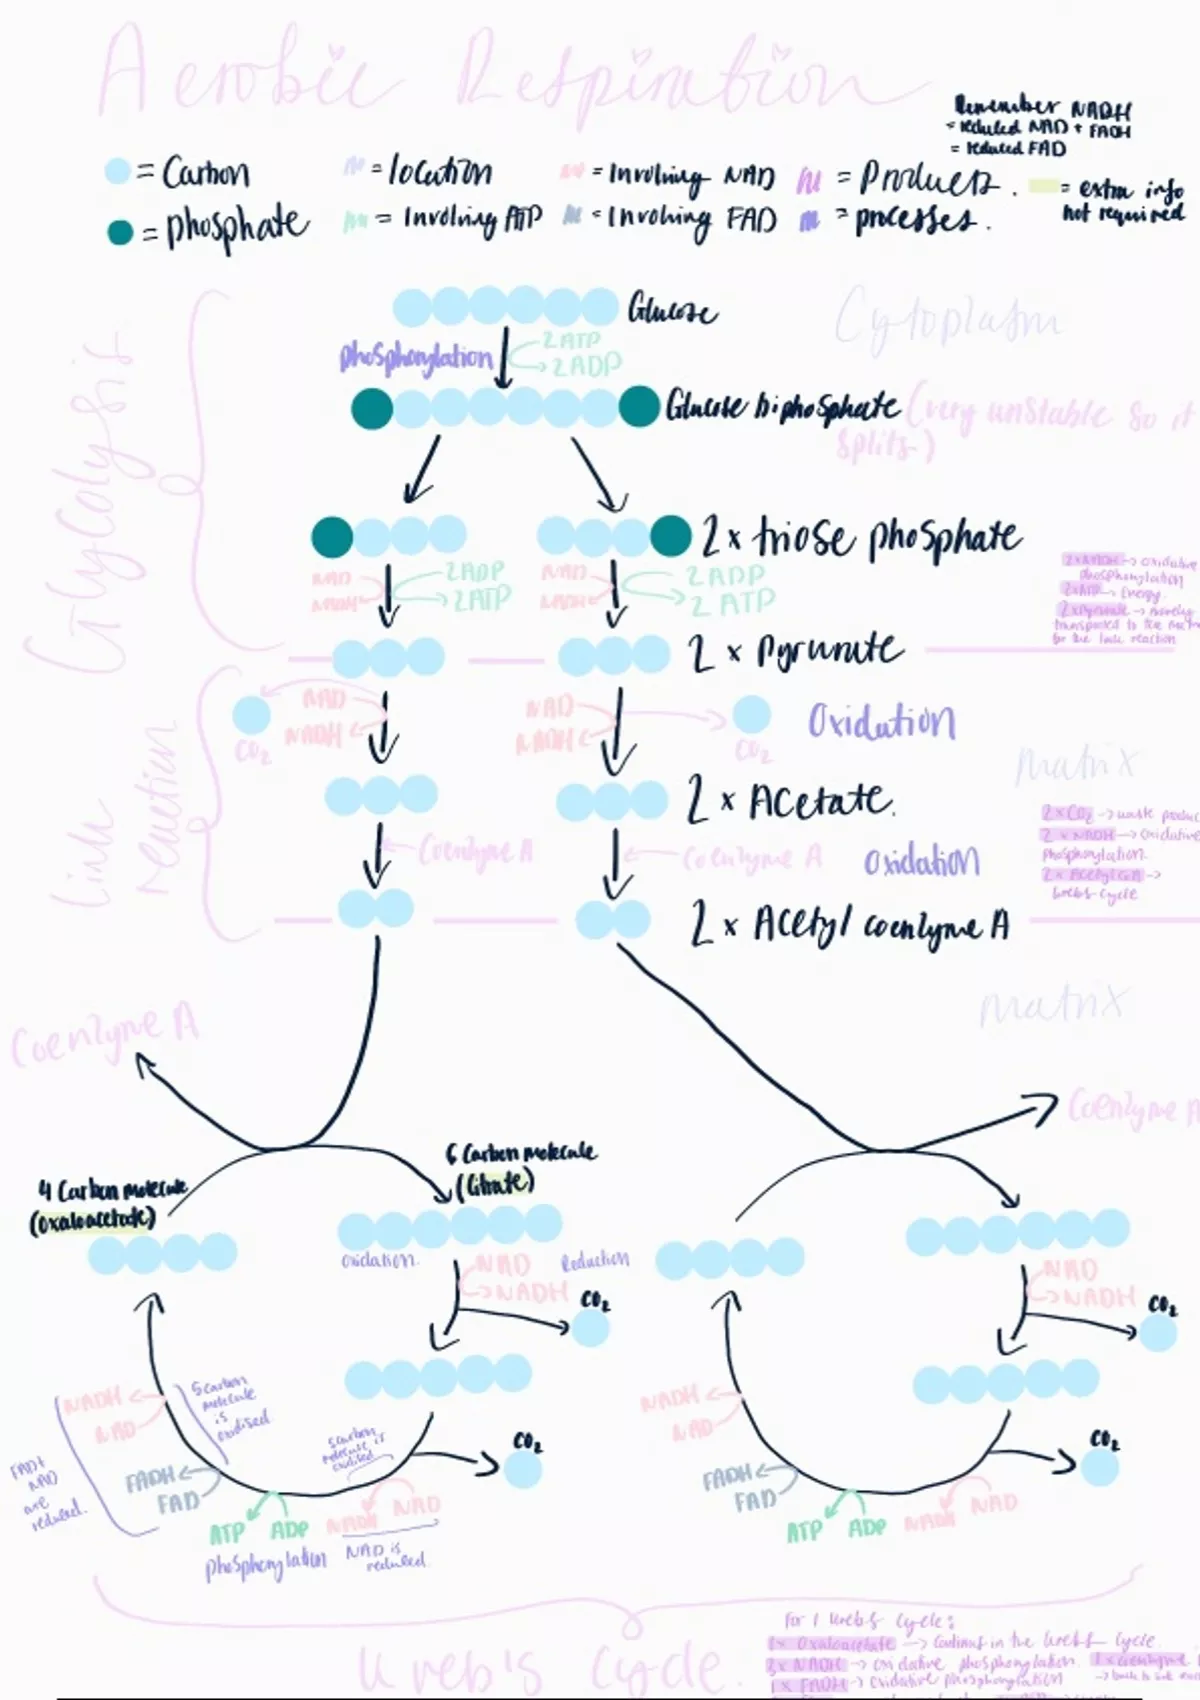 Aerobic Respiration
Remember NADH
= reduced NAD + FADH
= reduced FAD
= Carbon
= location
= Involving NAD
= Products.
= extra info
not required
= phosphate
= Involving ATP
= Involving FAD
= processes.
Glycolysis
Glucose
Cytoplasm
phosphorylation
2ATP
2ADP
Glucose biphosphate (very unstable so it
splits)
2 x triose phosphate
NAD
NADH
2ADP
2ATP
NAD
NADH
2ADP
2ATP
2xNADH -> oxidative
phosphorylation
2xATP -> Energy
2xPyruvate -> Actively
transported to the
for the link reaction
2 x Pyruvate
Link
reaction
CO2
NAD
NADH
NAD
NADH
CO2
Oxidation
matrix
2 x Acetate.
2 x CO2 -> waste produc
2 x NADH -> oxidative
phosphorylation.
2 x AcetylCoA ->
krebs cycle
Coenzyme A
Coenzyme A
Oxidation
2 x Acetyl coenzyme A
matrix
Coenzyme A
Coenzyme A
4 Carbon molecule
(oxaloacetate)
6 Carbon molecule
(Citrate)
oxidation.
NAD
NADH
Reduction
CO2
NAD
NADH
CO2
NADH
NAD
5 carbon
molecule
is
oxidised
FAD+
NAD
are
reduced.
FADH
FAD
ATP
ADP
phosphorylation
5 carbon
molecule is
oxidised
NADH
NAD
NAD is
reduced
CO2
NADH
NAD
FADH
FAD
ATP
ADP
NADH
NAD
CO2
Kreb's Cycle.
For 1 Kreb's Cycle:
1x Oxaloacetate -> Continues in the Krebs cycle.
3x NADH -> oxidative phosphorylation.
1 x coenzyme
1 x FADH -> oxidative phosphorylation
-> back to link